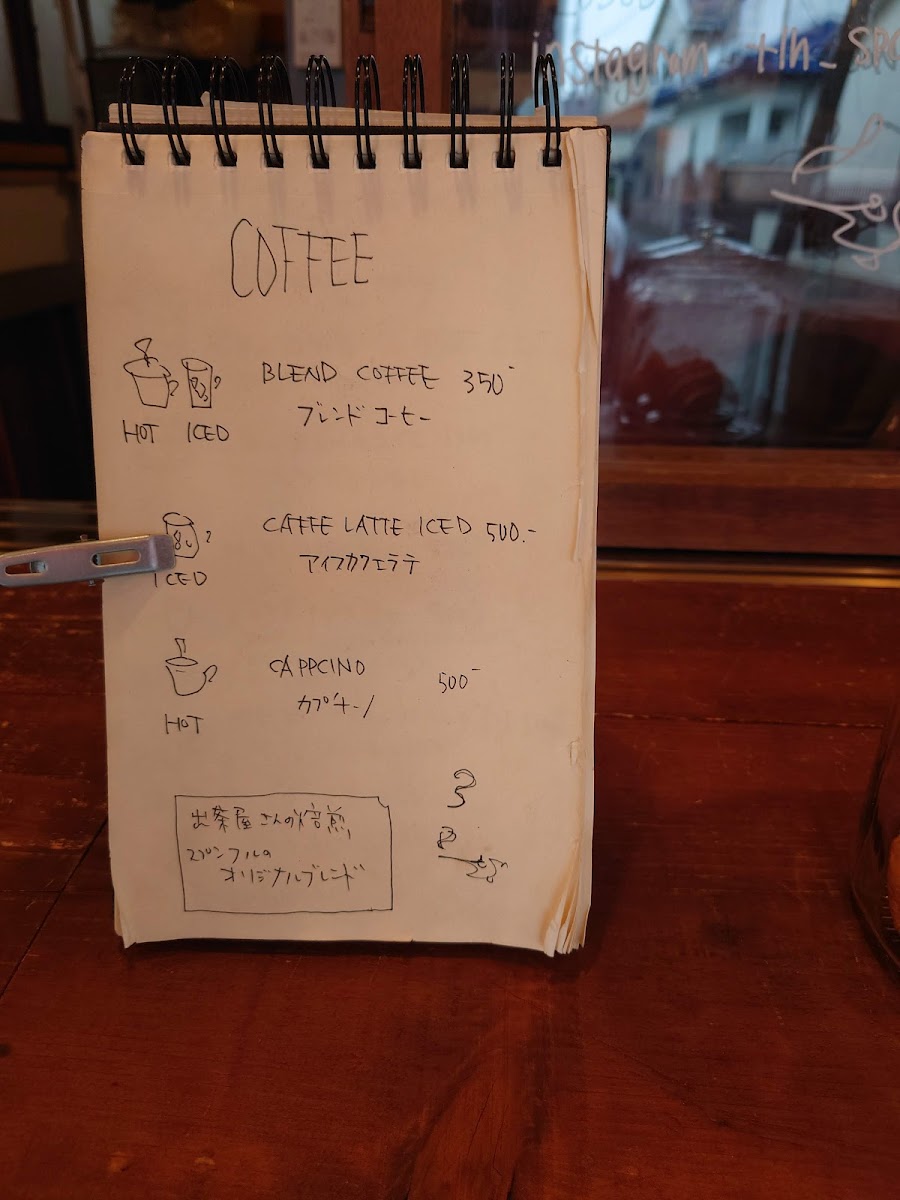 instagram
COFFEE
BLEND COFFEE 350-
ブレンドコーヒー
HOT ICED
CAFFE LATTE ICED 500.-
アイスカフェラテ
ICED
CAPPCINO 500-
カプチーノ
HOT
出茶屋さんの焙煎
スプンフルの
オリジナルブレンド